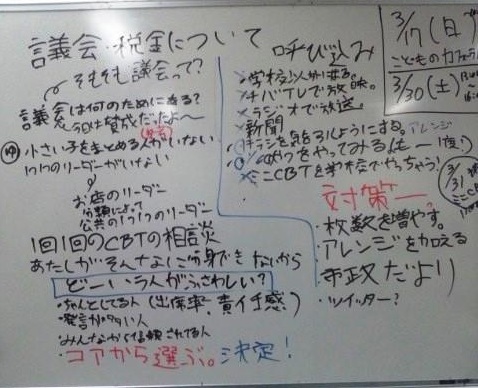 議会・税金について
そもそも議会って?
議会は何のためにある?
今回は賛成だったよ〜
小さい子をまとめる人がいない
1つ1つのリーダーがいない
お店のリーダー
分類によって
公共の1つ1つのリーダー
1回1回のCBTの相談
あたしがそんなに分身できないから
どーいう人がふさわしい?
・ちゃんとしてる人(出席率、責任感)
・発言がタタい人
・みんなから信頼されてる人
・コアから選ぶ。決定!
呼び込み
学校以外に来る。
チバテレで放映。
ラジオで放送。
新聞
チラシを気を引くようにする。アレンジ
ミニCBTを学校でやっちゃう!
対策
・枚数を増やす。
・アレンジを加える
・市政だより
・ツイッター?
3/17(日)
こどものカフェ
3/30(土)
3/31